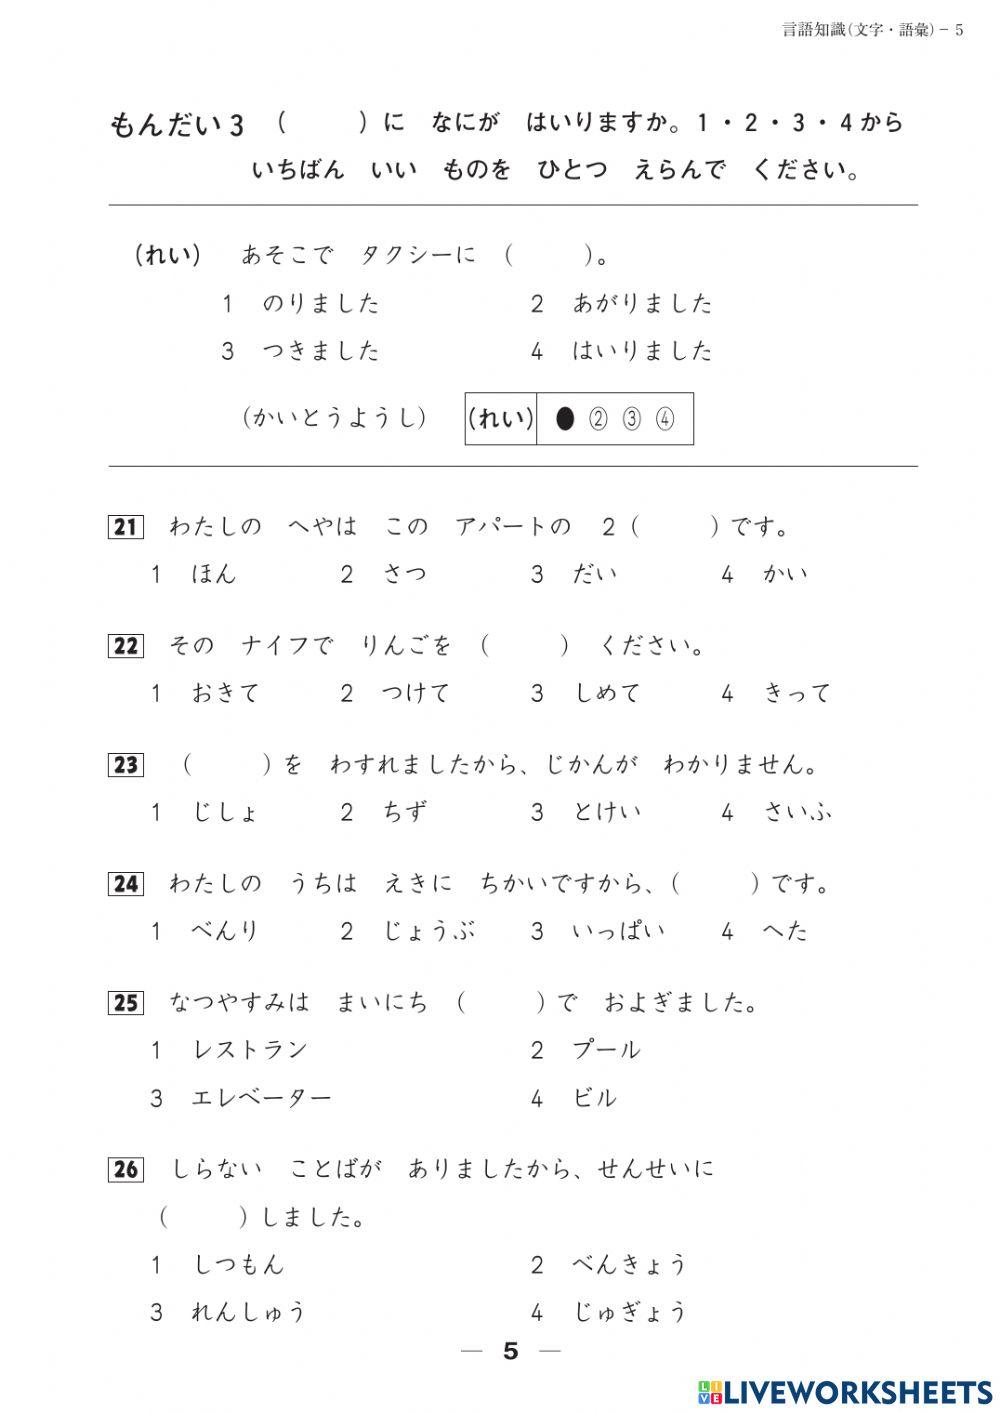 言語知識(文字・語彙)－5
もんだい3　（　　　）に　なにが　はいりますか。1・2・3・4から
いちばん　いい　ものを　ひとつ　えらんで　ください。
（れい）　あそこで　タクシーに　（　　　）。
1　のりました　2　あがりました
3　つきました　4　はいりました
（かいとうようし）　（れい）　● ② ③ ④
21　わたしの　へやは　この　アパートの　2（　　　）です。
1　ほん　2　さつ　3　だい　4　かい
22　その　ナイフで　りんごを　（　　　）　ください。
1　おきて　2　つけて　3　しめて　4　きって
23　（　　　）を　わすれましたから、じかんが　わかりません。
1　じしょ　2　ちず　3　とけい　4　さいふ
24　わたしの　うちは　えきに　ちかいですから、（　　　）です。
1　べんり　2　じょうぶ　3　いっぱい　4　へた
25　なつやすみは　まいにち　（　　　）で　およぎました。
1　レストラン　2　プール
3　エレベーター　4　ビル
26　しらない　ことばが　ありましたから、せんせいに
（　　　）しました。
1　しつもん　2　べんきょう
3　れんしゅう　4　じゅぎょう
— 5 —
LIVE LIVEWORKSHEETS